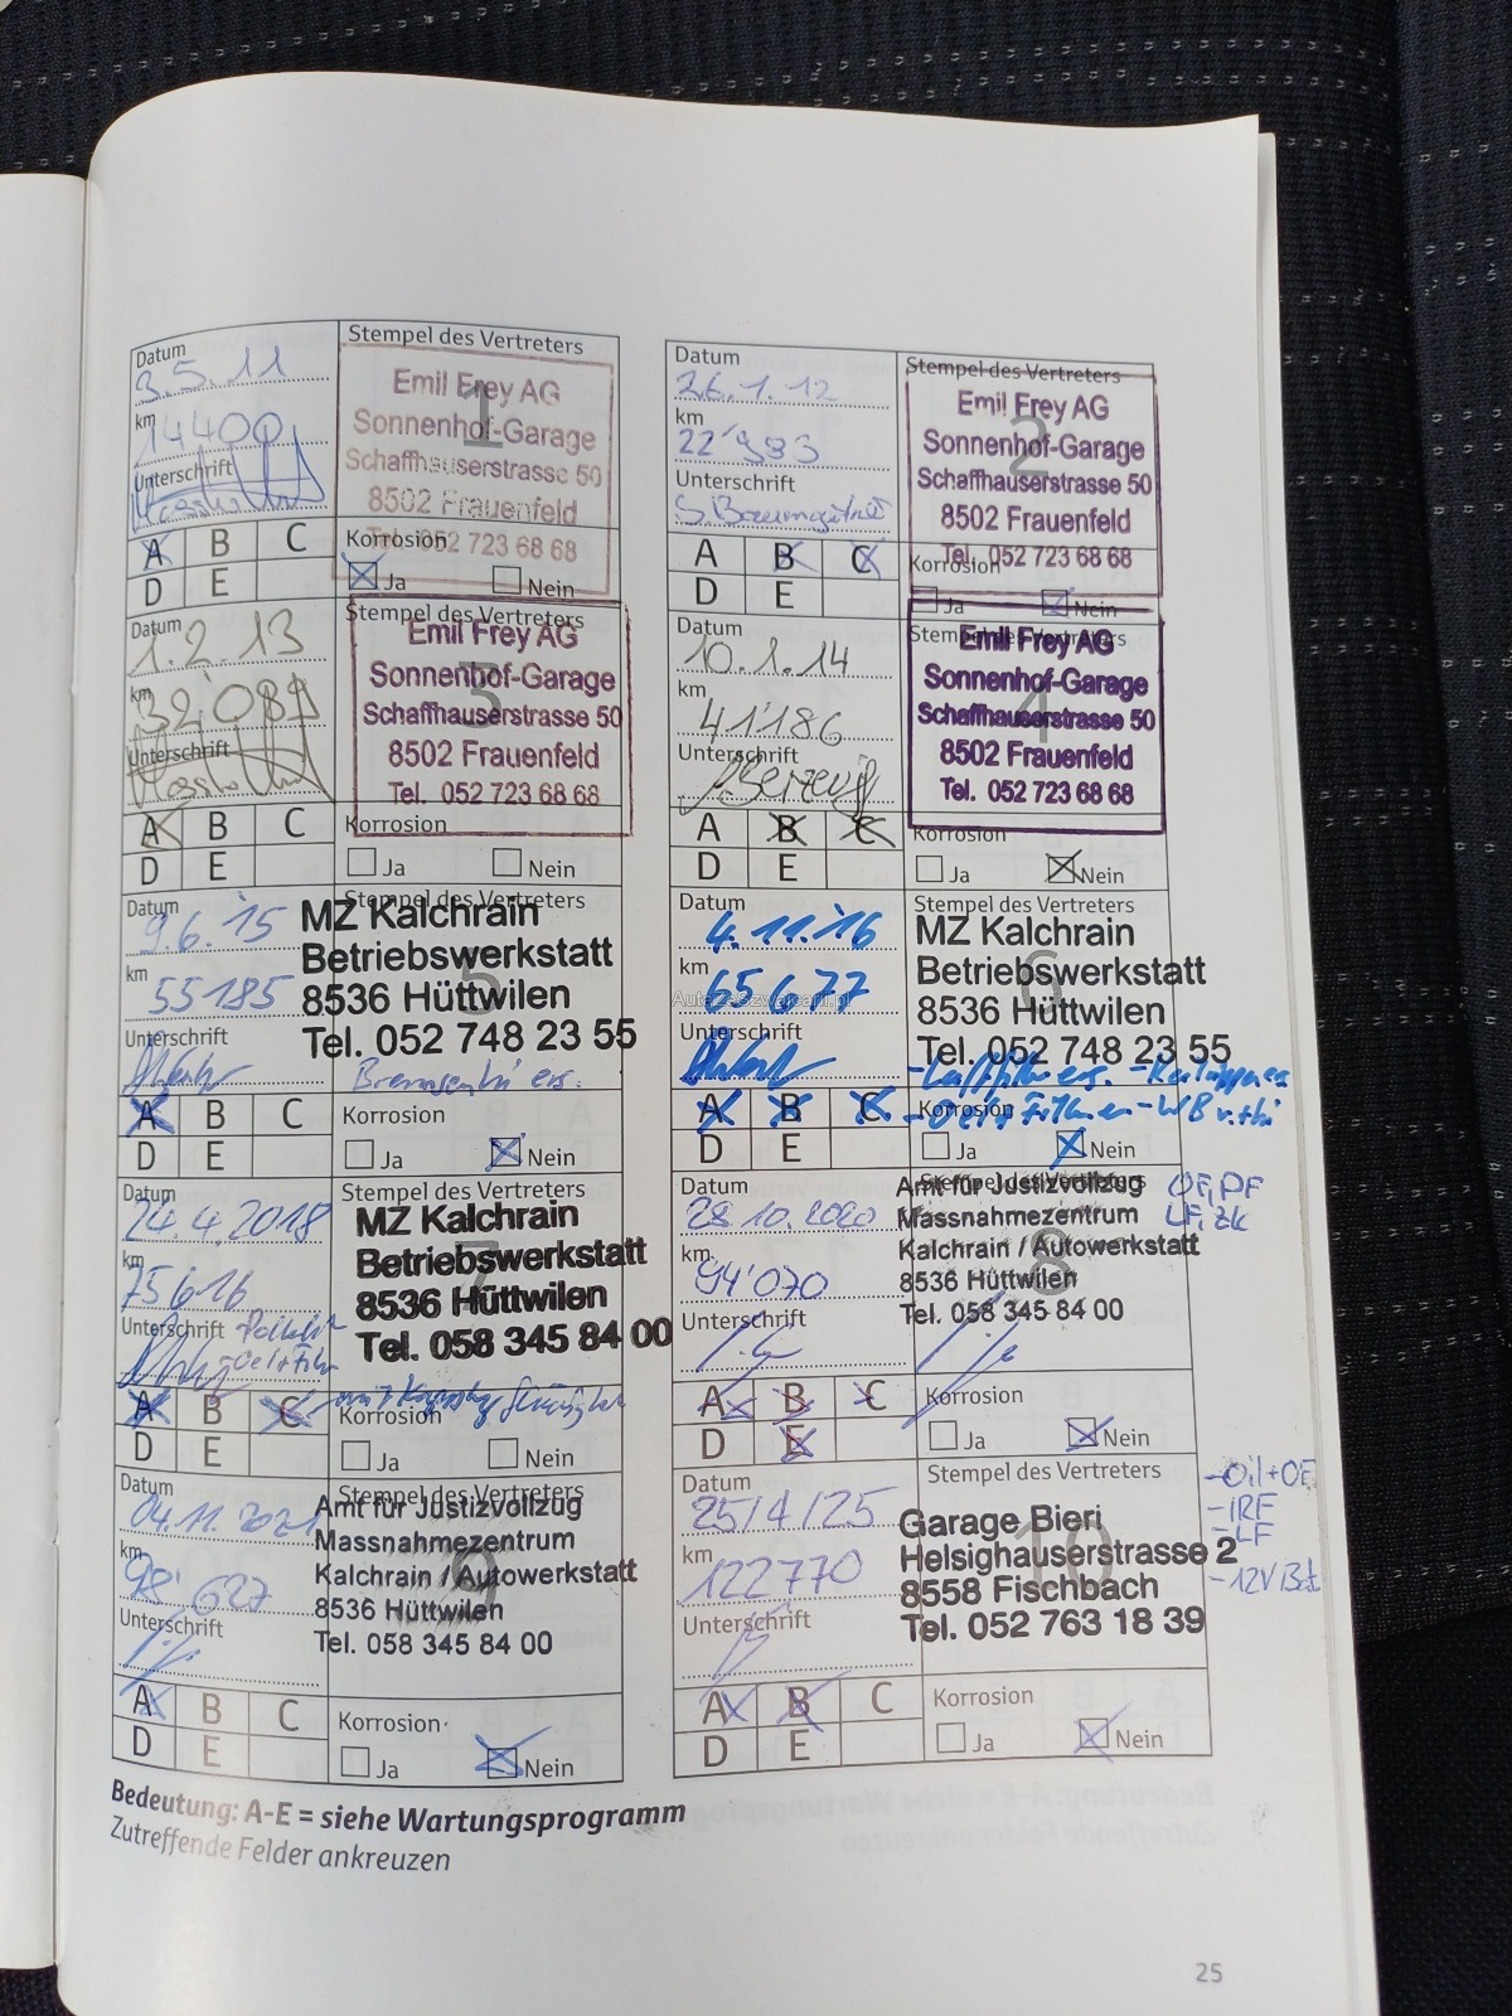 Datum
3.5.11
km
14400
Unterschrift
A B C
D E
Stempel des Vertreters
1
Emil Frey AG
Sonnenhof-Garage
Schaffhauserstrasse 50
8502 Frauenfeld
Tel. 052 723 68 68
Korrosion
Ja Nein
Datum
26.1.12
km
22'983
Unterschrift
A B C
D E
Stempel des Vertreters
2
Emil Frey AG
Sonnenhof-Garage
Schaffhauserstrasse 50
8502 Frauenfeld
Tel. 052 723 68 68
Korrosion
Ja Nein
Datum
1.2.13
km
32'089
Unterschrift
A B C
D E
Stempel des Vertreters
3
Emil Frey AG
Sonnenhof-Garage
Schaffhauserstrasse 50
8502 Frauenfeld
Tel. 052 723 68 68
Korrosion
Ja Nein
Datum
10.1.14
km
41'186
Unterschrift
A B C
D E
Stempel des Vertreters
4
Emil Frey AG
Sonnenhof-Garage
Schaffhauserstrasse 50
8502 Frauenfeld
Tel. 052 723 68 68
Korrosion
Ja Nein
Datum
9.6.15
km
55185
Unterschrift
A B C
D E
Stempel des Vertreters
5
MZ Kalchrain
Betriebswerkstatt
8536 Hüttwilen
Tel. 052 748 23 55
Korrosion
Ja Nein
Datum
4.11.16
km
65677
AutaZeSzwajcarii.pl
Unterschrift
A B C
D E
Stempel des Vertreters
6
MZ Kalchrain
Betriebswerkstatt
8536 Hüttwilen
Tel. 052 748 23 55
Korrosion
Ja Nein
Datum
24.4.2018
km
75616
Unterschrift
A B C
D E
Stempel des Vertreters
7
MZ Kalchrain
Betriebswerkstatt
8536 Hüttwilen
Tel. 058 345 84 00
Korrosion
Ja Nein
Datum
28.10.2020
km
94'070
Unterschrift
A B C
D E
Stempel des Vertreters
8
Amt für Justizvollzug
Massnahmezentrum
Kalchrain / Autowerkstatt
8536 Hüttwilen
Tel. 058 345 84 00
OF, PF
LF, ZK
Korrosion
Ja Nein
Datum
04.11.2021
km
98'627
Unterschrift
A B C
D E
Stempel des Vertreters
9
Amt für Justizvollzug
Massnahmezentrum
Kalchrain / Autowerkstatt
8536 Hüttwilen
Tel. 058 345 84 00
Korrosion
Ja Nein
Datum
25/4/25
km
122770
Unterschrift
A B C
D E
Stempel des Vertreters
10
Garage Bieri
Helsighauserstrasse 2
8558 Fischbach
Tel. 052 763 18 39
-Oil+OF
-IRF
-LF
-12V Bat
Korrosion
Ja Nein
Bedeutung: A-E = siehe Wartungsprogramm
Zutreffende Felder ankreuzen
25